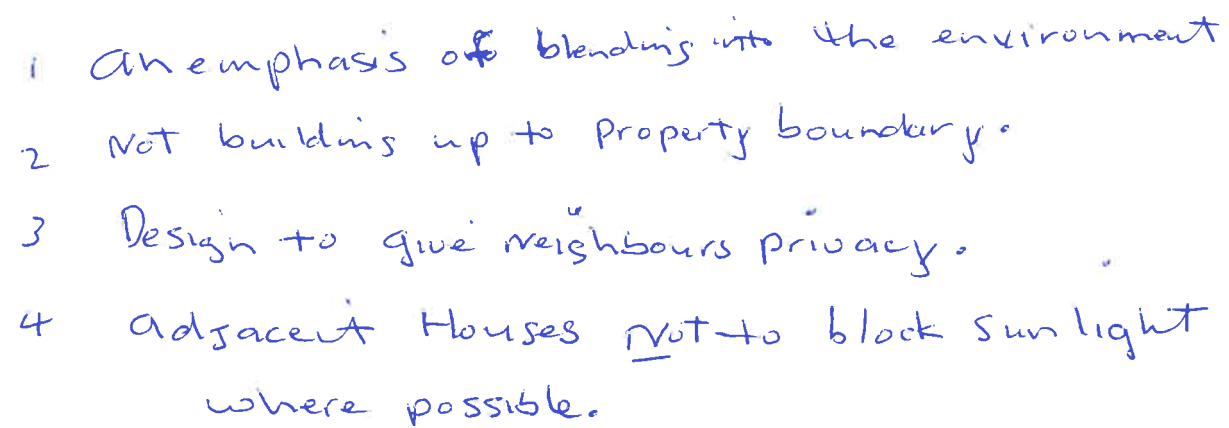 1 an emphasis of blending into the environment
2 Not building up to Property boundary.
3 Design to give Neighbours privacy.
4 adjacent Houses Not to block sunlight
where possible.